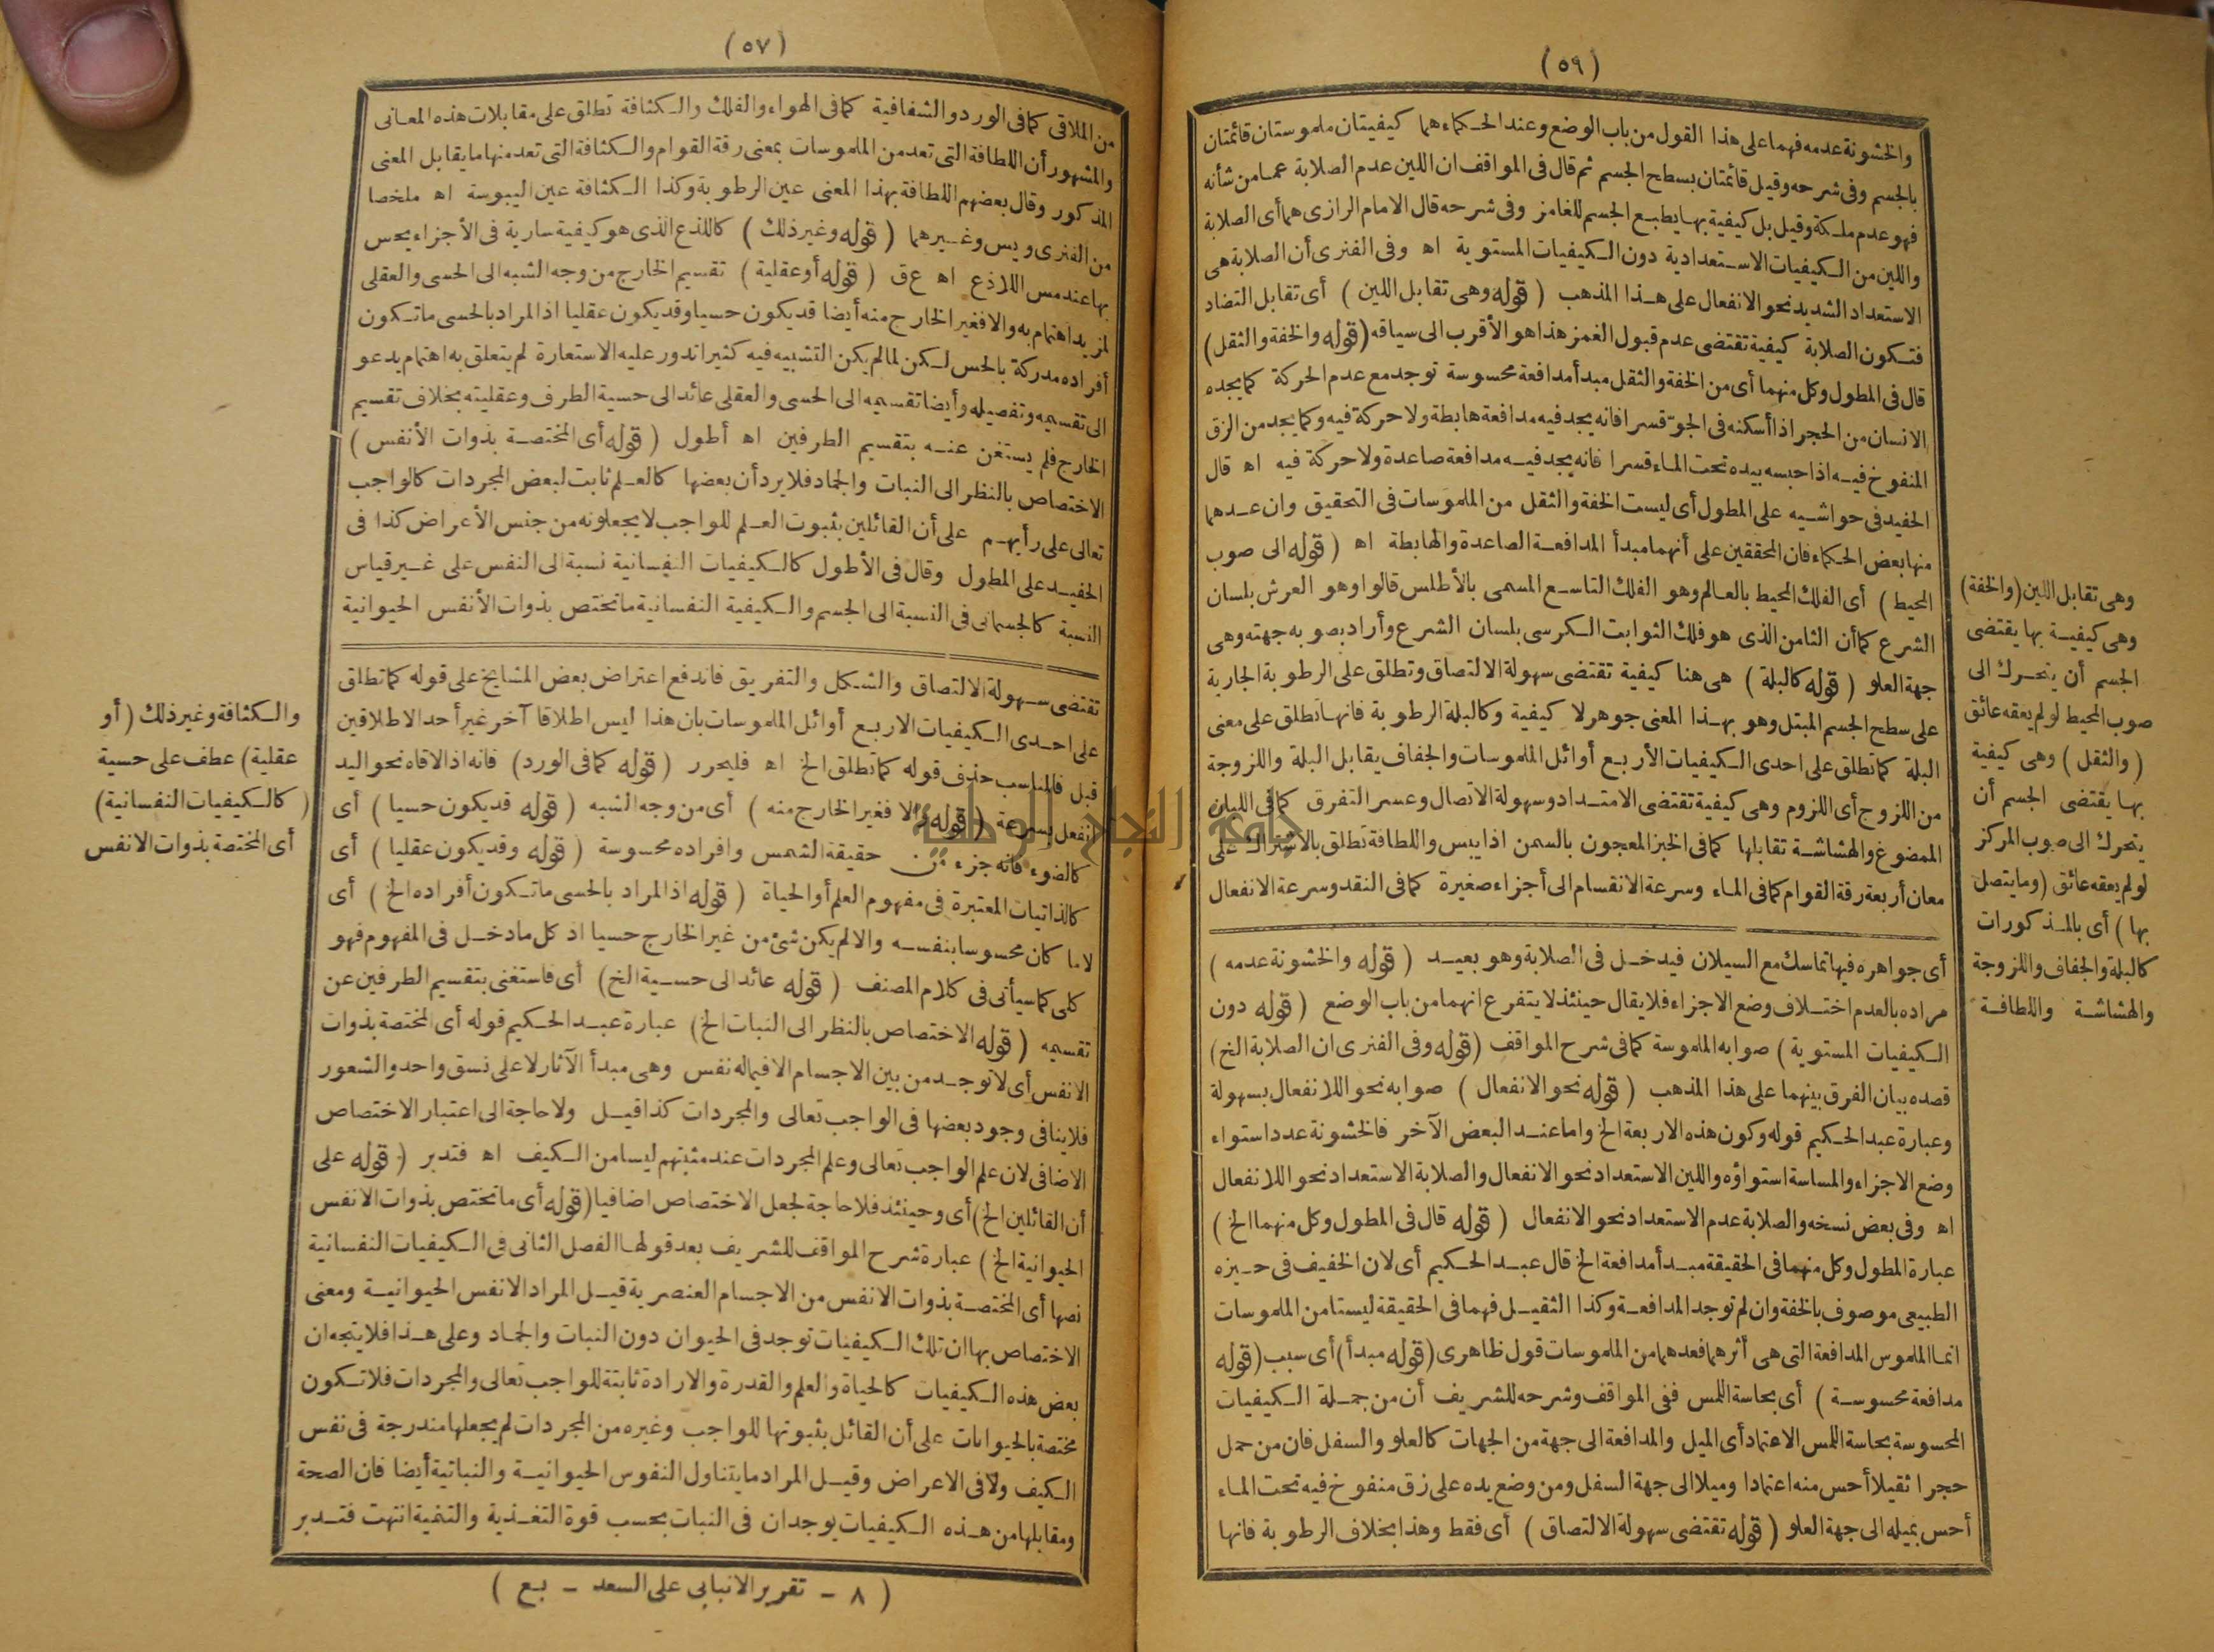 (٥٩)
والخشونة عدمه فهما على هذا القول من باب الوضع وعند الحكماء هما كيفيتان ملموستان قائمتان
بالجسم وفى شرحه وقيل قائمتان بسطح الجسم ثم قال فى المواقف ان اللين عدم الصلابة عما من شأنه
فهو عدم ملكة وقيل بل كيفية بها يطبع الجسم للغامز وفى شرحه قال الامام الرازى هما أى الصلابة
واللين من الكيفيات الاستعدادية دون الكيفيات المستوية اه وفى الفنرى أن الصلابة هى
الاستعداد الشديد نحو الانفعال على هذا المذهب (قوله وهى تقابل اللين) أى تقابل التضاد
فتكون الصلابة كيفية تقتضى عدم قبول الغمز هذا هو الأقرب الى سياقه (قوله والخفة والثقل)
قال فى المطول وكل منهما أى من الخفة والثقل مبدأ مدافعة محسوسة توجد مع عدم الحركة كما يجده
الانسان من الحجر اذا أسكنه فى الجوّ قسرا فانه يجد فيه مدافعة هابطة ولا حركة فيه وكما يجد من الزق
المنفوخ فيه اذا حبسه بيده تحت الماء قسرا فانه يجد فيه مدافعة صاعدة ولا حركة فيه اه قال
الحفيد فى حواشيه على المطول أى ليست الخفة والثقل من الملموسات فى التحقيق وان عدهما
منها بعض الحكماء فان المحققين على أنهما مبدأ المدافعة الصاعدة والهابطة اه (قوله الى صوب
المحيط) أى الفلك المحيط بالعالم وهو الفلك التاسع المسمى بالأطلس قالوا وهو العرش بلسان
الشرع كما أن الثامن الذى هو فلك الثوابت الكرسى بلسان الشرع وأراد بصوبه جهته وهى
جهة العلو (قوله كالبلة) هى هنا كيفية تقتضى سهولة الالتصاق وتطلق على الرطوبة الجارية
على سطح الجسم المبتل وهو بهذا المعنى جوهر لا كيفية وكالبلة الرطوبة فانها تطلق على معنى
البلة كما تطلق على احدى الكيفيات الأربع أوائل الملموسات والجفاف يقابل البلة واللزوجة
من اللزوج أى اللزوم وهى كيفية تقتضى الامتداد وسهولة الاتصال وعسر التفرق كما فى اللبان
الممضوغ والهشاشة تقابلها كما فى الخبز المعجون بالسمن اذا يبس واللطافة تطلق بالاشتراك على
معان أربعة رقة القوام كما فى الماء وسرعة الانقسام الى أجزاء صغيرة كما فى النقد وسرعة الانفعال
أى جواهره فيها تماسك مع السيلان فيدخل فى الصلابة وهو بعيد (قوله والخشونة عدمه)
مراده بالعدم اختلاف وضع الاجزاء فلا يقال حينئذ لا يتفرع انهما من باب الوضع (قوله دون
الكيفيات المستوية) صوابه الملموسة كما فى شرح المواقف (قوله وفى الفنرى ان الصلابة الخ)
قصده بيان الفرق بينهما على هذا المذهب (قوله نحو الانفعال) صوابه نحو اللا نفعال بسهولة
وعبارة عبد الحكيم قوله وكون هذه الاربعة الخ واما عند البعض الآخر فالخشونة عدد استواء
وضع الاجزاء والمساسة استواؤه واللين الاستعداد نحو الانفعال والصلابة الاستعداد نحو اللا نفعال
اه وفى بعض نسخه والصلابة عدم الاستعداد نحو الانفعال (قوله قال فى المطول وكل منهما الخ)
عبارة المطول وكل منهما فى الحقيقة مبدأ مدافعة الخ قال عبد الحكيم أى لان الخفيف فى حيزه
الطبيعى موصوف بالخفة وان لم توجد المدافعة وكذا الثقيل فهما فى الحقيقة ليستا من الملموسات
انما الملموس المدافعة التى هى أثرهما فعدهما من الملموسات قول ظاهرى (قوله مبدأ) أى سبب (قوله
مدافعة محسوسة) أى بحاسة اللمس ففى المواقف وشرحه للشريف أن من جملة الكيفيات
المحسوسة بحاسة اللمس الاعتماد أى الميل والمدافعة الى جهة من الجهات كالعلو والسفل فان من حمل
حجرا ثقيلا أحس منه اعتمادا وميلا الى جهة السفل ومن وضع يده على زق منفوخ فيه تحت الماء
أحس بميله الى جهة العلو (قوله تقتضى سهولة الالتصاق) أى فقط وهذا بخلاف الرطوبة فانها
وهى تقابل اللين (والخفة)
وهى كيفية بها يقتضى
الجسم أن يتحرك الى
صوب المحيط لو لم يعقه عائق
(والثقل) وهى كيفية
بها يقتضى الجسم أن
يتحرك الى صوب المركز
لو لم يعقه عائق (وما يتصل
بها) أى بالمذكورات
كالبلة والجفاف واللزوجة
والهشاشة واللطافة
(٥٧)
من الملاقى كما فى الورد والشفافية كما فى الهواء والفلك والكثافة تطلق على مقابلات هذه المعانى
والمشهور أن اللطافة التى تعد من الملموسات بمعنى رقة القوام والكثافة التى تعد منها ما يقابل المعنى
المذكور وقال بعضهم اللطافة بهذا المعنى عين الرطوبة وكذا الكثافة عين اليبوسة اه ملخصا
من الفنرى ويس وغيرهما (قوله وغير ذلك) كاللذع الذى هو كيفية سارية فى الأجزاء يحس
بها عند مس اللاذع اه ع ق (قوله أو عقلية) تقسيم الخارج من وجه الشبه الى الحسى والعقلى
لمزيد اهتمام به والا فغير الخارج منه أيضا قد يكون حسيا وقد يكون عقليا اذ المراد بالحسى ما تكون
أفراده مدركة بالحس لكن لما لم يكن التشبيه فيه كثيرا تدور عليه الاستعارة لم يتعلق به اهتمام يدعو
الى تقسيمه وتفصيله وأيضا تقسيمه الى الحسى والعقلى عائد الى حسية الطرف وعقليته بخلاف تقسيم
الخارج فلم يستغن عنه بتقسيم الطرفين اه أطول (قوله أى المختصة بذوات الأنفس)
الاختصاص بالنظر الى النبات والجماد فلا يرد أن بعضها كالعلم ثابت لبعض المجردات كالواجب
تعالى على رأيهم على أن القائلين بثبوت العلم للواجب لا يجعلونه من جنس الأعراض كذا فى
الحفيد على المطول وقال فى الأطول كالكيفيات النفسانية نسبة الى النفس على غير قياس
النسبة كالجسمانى فى النسبة الى الجسم والكيفية النفسانية ما تختص بذوات الأنفس الحيوانية
تقتضى سهولة الالتصاق والشكل والتفريق فاندفع اعتراض بعض المشايخ على قوله كما تطلق
على احدى الكيفيات الاربع أوائل الملموسات بان هذا ليس اطلاقا آخر غير أحد الاطلاقين
قبل فالمناسب حذف قوله كما تطلق الخ اه فليحرر (قوله كما فى الورد) فانه اذا لاقاه نحو اليد
انفعل بسرعة (قوله والا فغير الخارج منه) أى من وجه الشبه (قوله قد يكون حسيا) أى
كالضوء فانه جزء من حقيقة الشمس وافراده محسوسة (قوله وقد يكون عقليا) أى
كالذاتيات المعتبرة فى مفهوم العلم أو الحياة (قوله اذ المراد بالحسى ما تكون أفراده الخ) أى
لا ما كان محسوسا بنفسه والا لم يكن شئ من غير الخارج حسيا اذ كل ما دخل فى المفهوم فهو
كلى كما سيأتى فى كلام المصنف (قوله عائد الى حسية الخ) أى فاستغنى بتقسيم الطرفين عن
تقسيمه (قوله الاختصاص بالنظر الى النبات الخ) عبارة عبد الحكيم قوله أى المختصة بذوات
الانفس أى لا توجد من بين الاجسام الا فيما له نفس وهى مبدأ الآثار لا على نسق واحد والشعور
فلا ينافى وجود بعضها فى الواجب تعالى والمجردات كذا قيل ولا حاجة الى اعتبار الاختصاص
الاضافى لان علم الواجب تعالى وعلم المجردات عند مثبتهم ليسا من الكيف اه فتدبر (قوله على
أن القائلين الخ) أى وحينئذ فلا حاجة لجعل الاختصاص اضافيا (قوله أى ما تختص بذوات الانفس
الحيوانية الخ) عبارة شرح المواقف للشريف بعد قولها الفصل الثانى فى الكيفيات النفسانية
نصها أى المختصة بذوات الانفس من الاجسام العنصرية قيل المراد الانفس الحيوانية ومعنى
الاختصاص بها ان تلك الكيفيات توجد فى الحيوان دون النبات والجماد وعلى هذا فلا يتجه ان
بعض هذه الكيفيات كالحياة والعلم والقدرة والارادة ثابتة للواجب تعالى والمجردات فلا تكون
مختصة بالحيوانات على أن القائل بثبوتها للواجب وغيره من المجردات لم يجعلها مندرجة فى نفس
الكيف ولا فى الاعراض وقيل المراد ما يتناول النفوس الحيوانية والنباتية أيضا فان الصحة
ومقابلها من هذه الكيفيات يوجدان فى النبات بحسب قوة التغذية والتنمية انتهت فتدبر
والكثافة وغير ذلك (أو
عقلية) عطف على حسية
(كالكيفيات النفسانية)
أى المختصة بذوات الانفس
(٨ - تقرير الانبابى على السعد - بع)
جامعة النجاح الوطنية